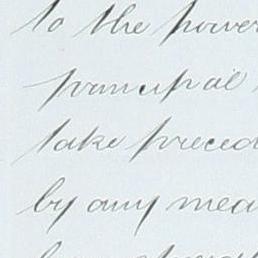 to the power
principal
take preced
by any mea